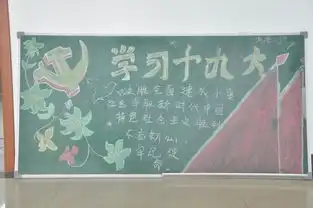 学习十九大
决胜全面建成小康
社会夺取新时代中国
特色社会主义胜利
不忘初心
牢记使
命